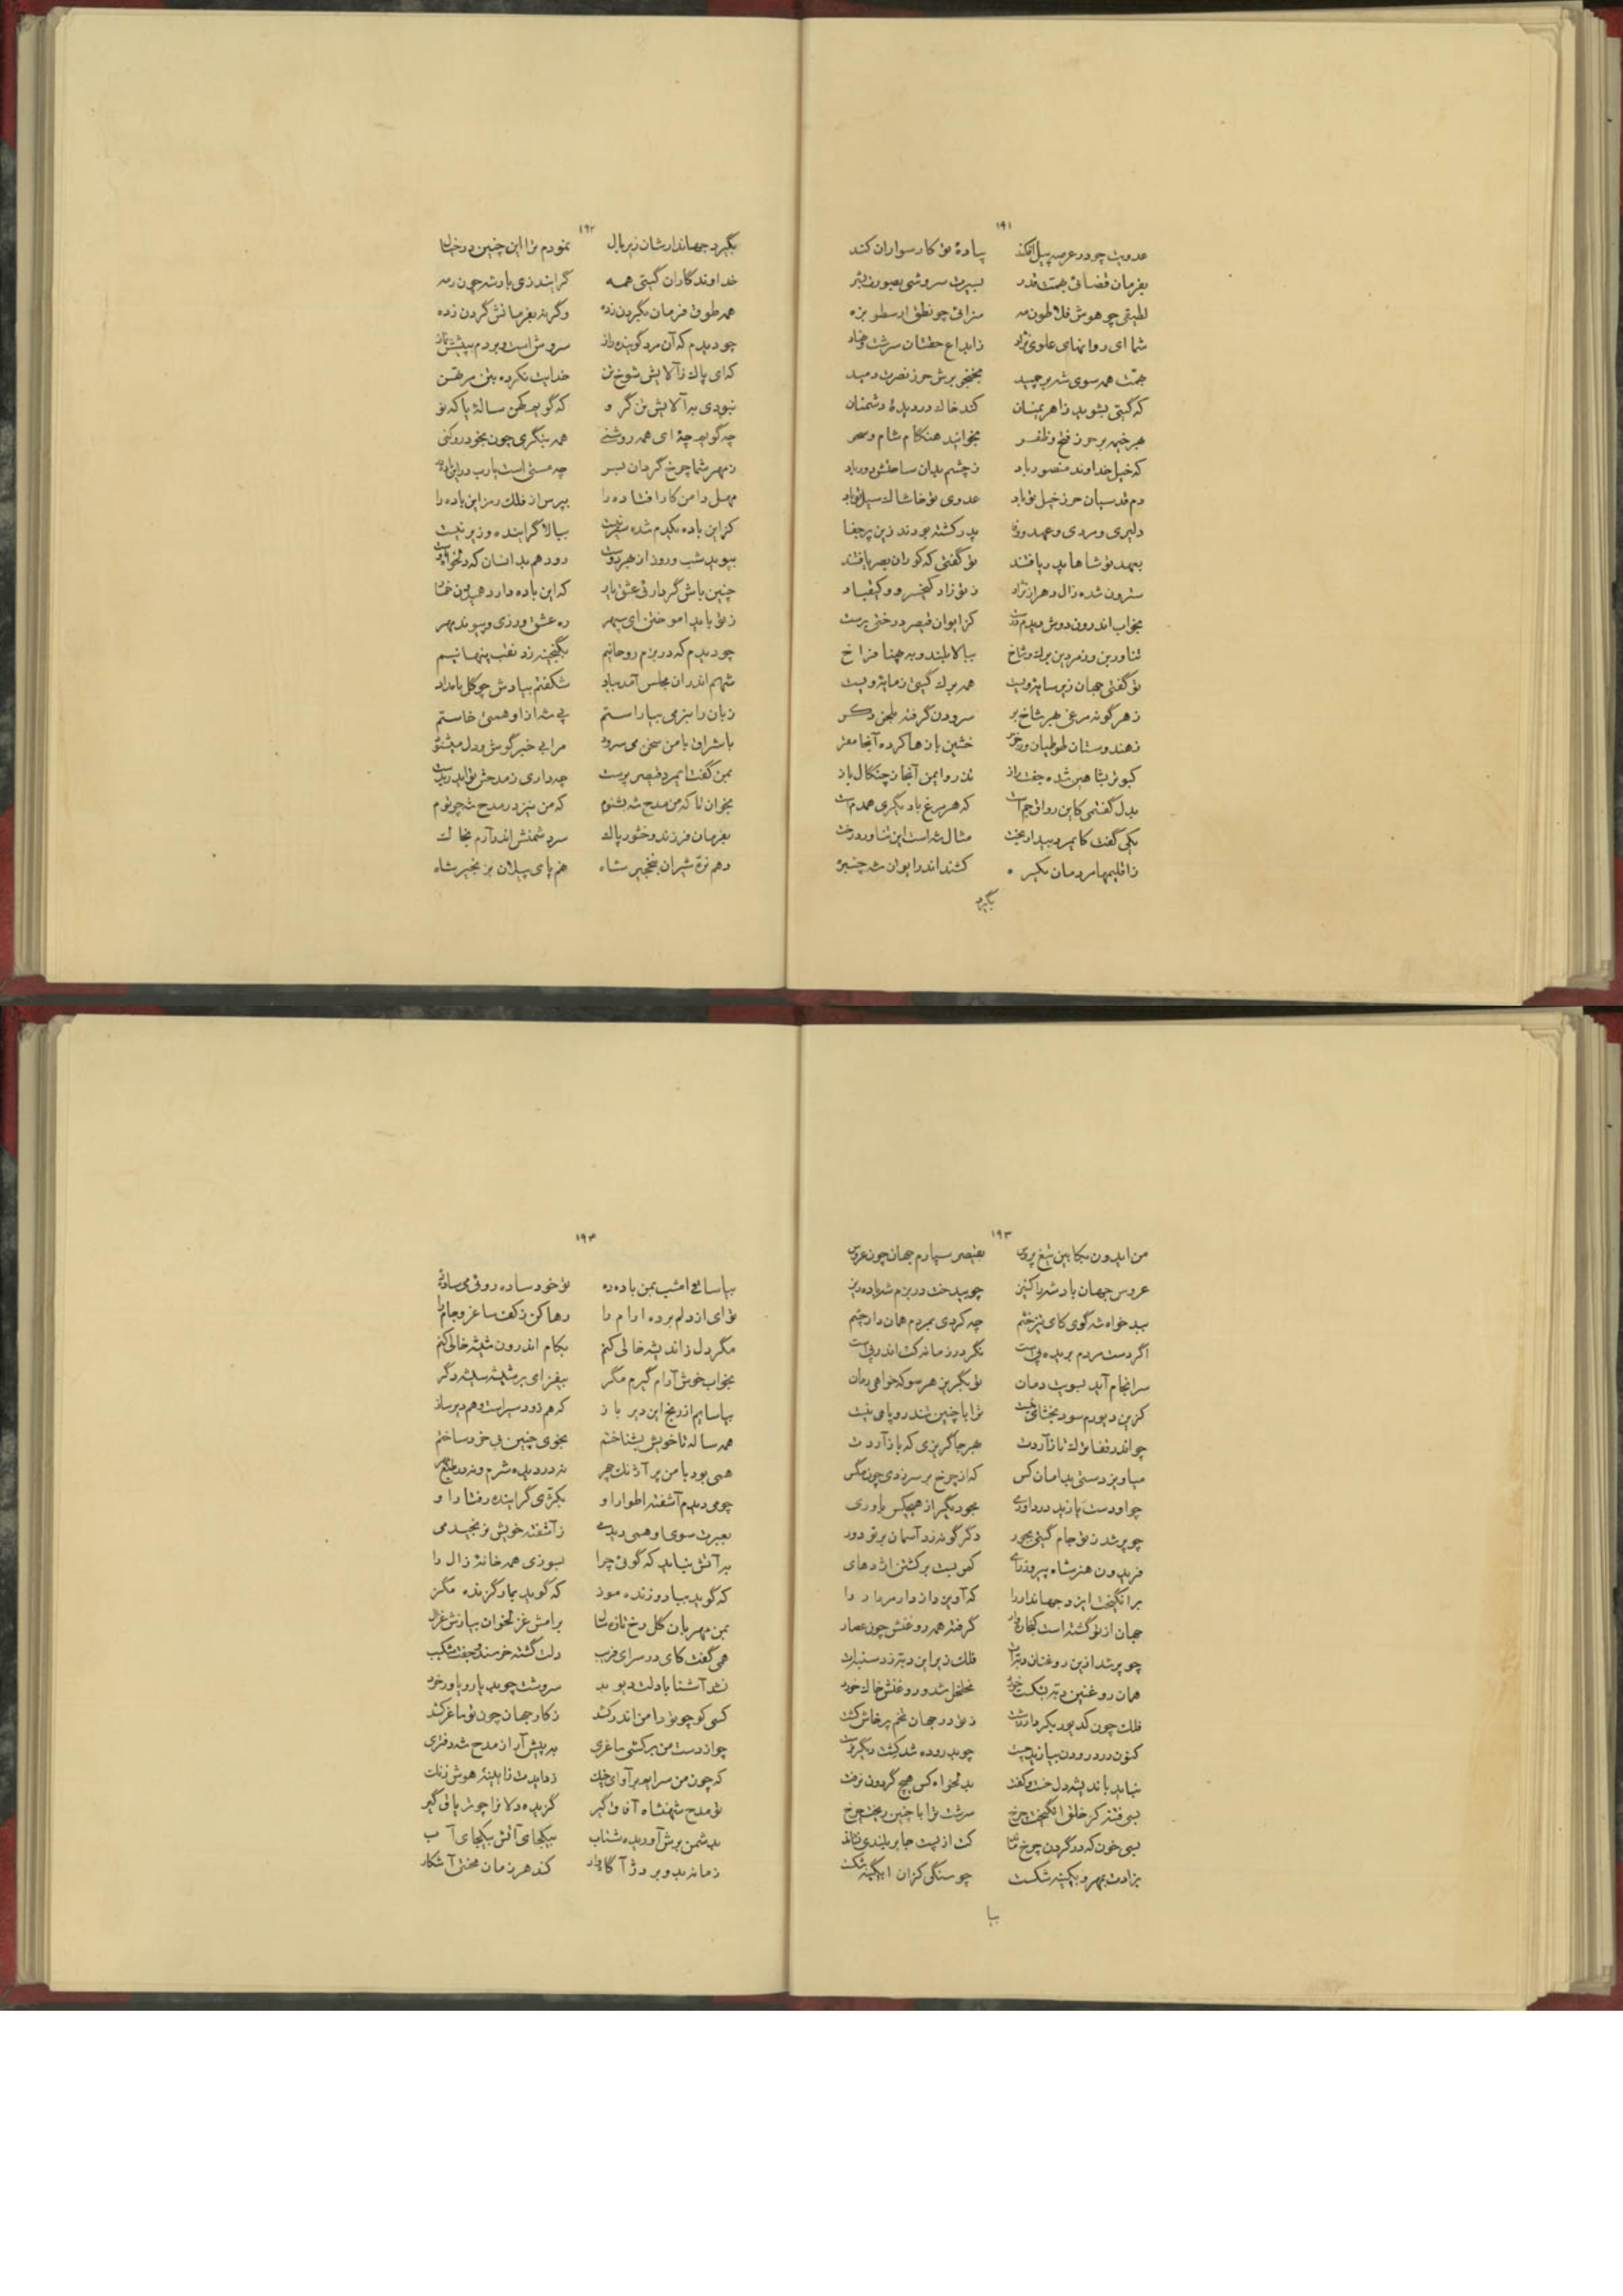 ۱۹۱
عدویت چو در عرصه پیل افکند پیادهٔ تو کار سواران کند
بفرمان قضائی بهمت قدر بسیرت سروشی بصورت بشر
لطیفی چو هوش فلاطون مزه
شما ای روانهای علوی نژاد
بهمت همه سوی شه برچمید
که گیتی بشوید ز اهریمنان کند خاک در دیدهٔ دشمنان
بهر خیمه بر حرز فتح و ظفر بخوانید هنگام شام و سحر
که خیل خداوند منصور باد ز چشم بدان ساحتش دور باد
دم قدسیان حرز خیل تو باد عدوی تو خاشاک سیل تو باد
دلیری و مردی و عهد و وفا بدر گشته بودند زین پر جفا
بعهد تو شاها بدر یافتند تو گفتی که کوران بصر یافتند
سترون شده زال دهر از نژاد ز تو زاد کیخسرو و کیقباد
بخواب اندرون دوش دیدم کز ایوان قیصر درختی برست
تناور بن و زمردین برگ و شاخ ببالا بلند و به پهنا فراخ
تو گفتی جهان زیر سایه رویست همه برگ گیتی
ز هر گونه مرغی بهر شاخ بر سرودن گرفته بلحن دگر
ز هندوستان طوطیان آنجا مقر
کبوتر بشاهین شده جفت راز تذرو ایمن آنجا ز چنگال باز
بدل گفتمی کاین که هر مرغ با دیگری همدم است
یکی گفت کایمرد بیدار بخت مثال شه است این تناور درخت
ز اقلیمها مردمان کشند اندر ایوان شه
بگیرد
۱۹۲
بگیرد جهاندارشان زیر بال نمودم ترا این چنین در خیال
خداوندگاران گیتی همه گرایند زی پادشه چون رمه
همه طوق فرمان بگردن زده وگرنه بفرمانش گردن زده
چو دیدم که آن مرد گوینده راز سروش است و بردم به پیشش نماز
که ای پاک ز آلایش شوخ تن خدایت نکرده بتن مرتهن
نبودی به آلایش تن گرو که گوید کهن ساله یا که نو
چه گوید چه ای همه روشنی همه بنگری چون بخود روکنی
ز مهر شما چرخ گردان بسر چه مستی است یا رب
مهل دامن کار افتاده را بپرس از فلک رمز این باده را
کز این باده یکدم شده سیر نیست ببالا گراینده و زیر نیست
بپوید شب و روز رود هم بدانسان که دلخواه اوست
چنین باش گر دار فی عشق یار که این باده دارد
ز تو باید آموختن ای سپهر ره عشق ورزی و پیوند مهر
چو دیدم که در بزم روحانیم بگنجینه زد نقب پنهانیم
شهم اندر آن مجلس آمد بیاد شکفتم بیادش چو گل بامداد
زبان را ببزمی بیاراستم پی مدد از او همی خاستم
باشراق با من سخن می سرود مرا بی خبر گوش و دل میشنود
بمن گفت ایمرد قیصر پرست چه داری ز مدحش
بخوان تا که من مدح شه بشنوم که من نیز در مدح شه چون توم
بفرمان فرزند وخشور پاک سر دشمنش اندر آرم بخاک
دهم نرّه شیران بنخجیر شاه هم پای پیلان بزنجیر شاه
۱۹۳
من ایدون بکابین تیغ پروس بقیصر سپارم جهان چون عروس
عروس جهان باد شه را کنیز چو بیدخت در بزم شه باده ریز
ببدخواه شه گوی کای تیز خشم چه کردی بمردم همان دار چشم
اگر دست مردم بریده پی است نگر در زمانه کت اندر پی است
سرانجام آید بسویت دمان تو بگریز هر سو که خواهی دمان
گزین دیورم سود بخشای نیست ترا با چنین تندرو پای نیست
چو اندر قفا ترک تاز آردت بهر جا گریزی که باز آردت
میاویز دستی بدامان کس که از چرخ بر سر زدی چون مگس
چو او دست یازید در داوری مجو دیگر از هیچکس یاوری
چو پر شد ز تو جام گیتی بجور دگرگونه زد آسمان بر تو دور
فریدون هنر شاه پیروز رای کمر بست بر کشتن اژدهای
برانگیخت ایزد جهاندار را که آویزد از دار مردار را
جهان از تو گشته است گرفته همه روغنش چون عصار
چو پر شد ازین روغنان دبّه ات فلک زیر این دبّه زد
همان روغنین دبّه بشکست خورد تخلخل شد و روغنش خاک خورد
فلک چون کدیور
کنون درد رودن بباید چو بد روده شد کشت دیگر درست
نباید باندیشه دل خست و گفت بدلخواه کس هیچ گردون نرفت
بسی فتنه کز خلق انگیخت چرخ سرشت ترا با چنین ریخت چرخ
بسی خون که در گردن چرخ ماند کت از پست جا بر بلندی نشاند
بزادت بمهر و بکینه شکست چو سنگی کزان آبگینه شکست
بیا
۱۹۴
بیا ساقی امشب بمن باده ده تو خود ساده روئی می ساده ده
تو ای از دلم برده آرام را رها کن ز کف ساغر و جام را
مگر دل ز اندیشه خالی کنم بکام اندرون شیشه خالی کنم
بخواب خوش آرام گیرم مگر بیفزای بر شیشه شیشه دگر
بیاسایم از رنج این دیر باز که هم زود سیر است و هم دیر ساز
همه ساله تا خویش بشناختم بخوی چنین بی خرد ساختم
همی بود با من پر آژنگ چهر نه در دیده شرم و نه در طبع مهر
چو می دیدم آشفته اطوار او بکژی گراینده رفتار او
بعبرت سوی او همی دیدمی ز آشفته خویش ترنجیدمی
بر آتش نباید که گوئی چرا بسوزی همه خانهٔ زال را
که گوید بیا روز زنده مور که گوید بمار گزنده مگز
بمن مهربان گل رخ تازه سال برامش غزلخوان
همی گفت کای در سرای فریب دلت گشته خرسند و جفت شکیب
نشد آشنا با دلت دیو بد سروشت چو بد یار و یاور خرد
کسی کو چو تو دامن اندر کشد ز کار جهان چون تو ساغر کشد
چو از دست من بر کشی ساغری به پیش آر از مدح شه دفتری
که چون من سرایم بر آوای چنگ زدایدت ز آیینهٔ هوش زنگ
تو مدح شهنشاه آفاق گیر گزیده دلا را چو تریاق گیر
بدشمن برش آور دیده شتاب بیکجای آتش بیکجای آب
زمانه بد و بر دژ آگاه وار کند هر زمان محنتی آشکار